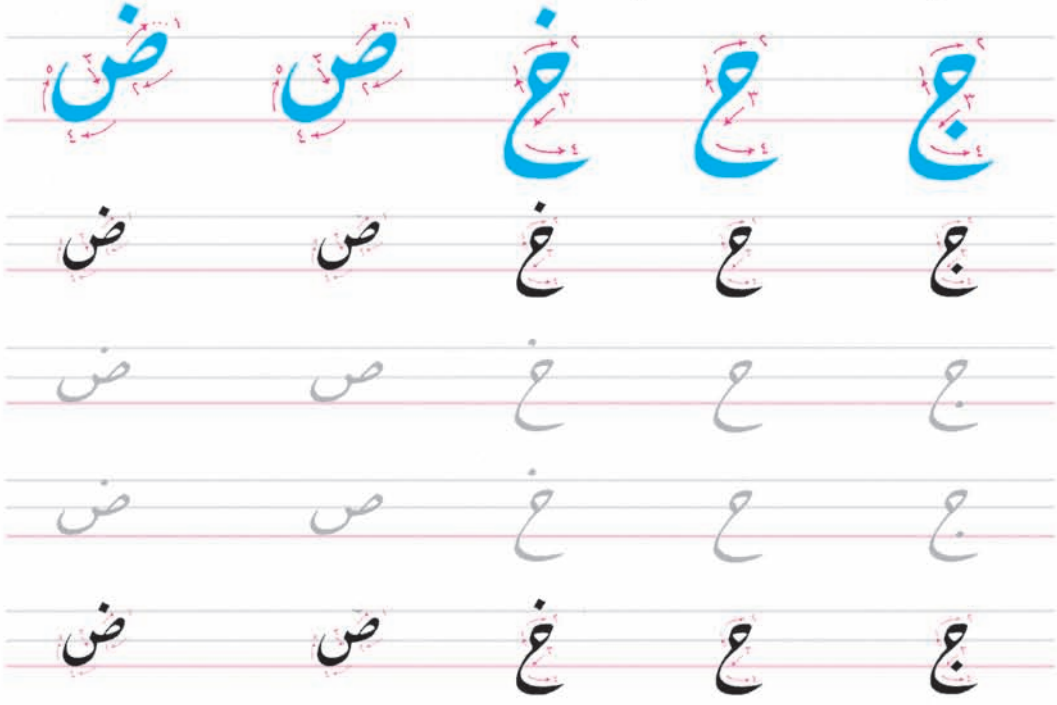 ج ح خ ص ض
ج ح خ ص ض
ج ح خ ص ض
ج ح خ ص ض
ج ح خ ص ض